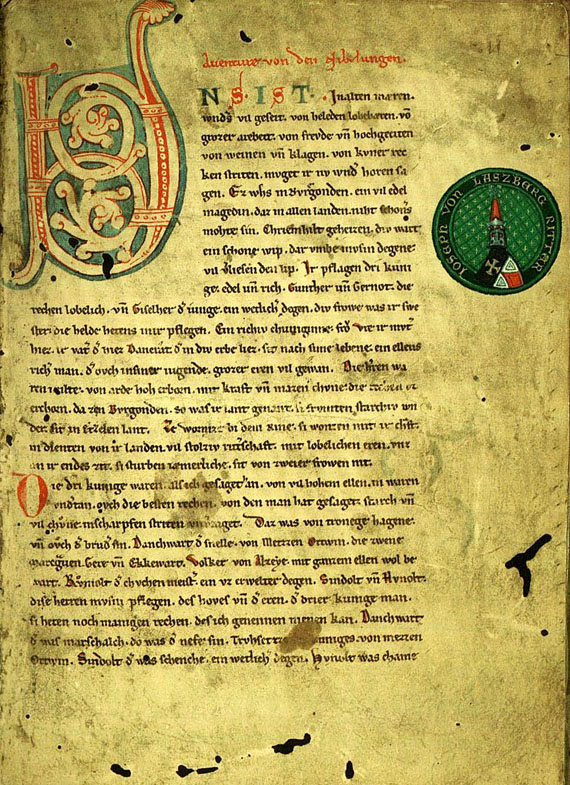 Aventure von den Nibelungen.
VNS. IST. In alten mæren.
wnds vil geseit. von heleden lobebæren. vō
grozer arebeit. von frevde vn̄ hochgeciten
von weinen vn̄ klagen. von kvner rec
ken striten. mvget ir nv wnd horen sa
gen. Ez whs in Bvrgonden. ein vil edel
magedin. daz in allen landen. niht schoners
mohte sin. Chriemhilt geheizen. div wart
ein schone wip. dar vmbe mvsin degene.
vil vliesen den lip. Ir pflagen dri kuni
ge. edel vn̄ rich. Gunther vn̄ Gernot. die
rechen lobelich. vn̄ Giselher d iunge. ein wetlich degen. div frowe was ir swe
ster. die helde hetens mir pflegen. Ein richiv chuniginne. frō Vte ir mvter
hiez. ir vater d hiez Dancrat. d in div erbe liez. sit nach sime lebene. ein ellens
rich man. d ovch in siner iugende. grozer eren vil gewan. Die herren wa
ren milte. von arde hoh erborn. mit kraft vn̄ mazen chvne. die rechen vz
erchorn. da zen Bvrgonden. so was ir lant genant. si frvmten starchiv wn
der. sit in Etzelen lant. Ze Wormze bi dem Rine. si wonten mit ir chraft.
in dienten von ir landen. vil stolziv ritschaft. mit lobelichen eren. vnz
an ir endes zit. si sturben iæmerliche. sit von zweier frowen nit.
Die dri kunige waren. als ich gesaget han. von vil hohem ellen. in waren
vndertan. ovch die besten rechen. von den man hat gesaget. starch vn̄
vil chvne. in scharpfen striten vnverzaget. Daz was von tronege hagene.
vn̄ ovch d brud sin. Danchwart d snelle. von Metzzen Ortwin. die zwene
maregrven. Gere vn̄ Ekkewart. Volker von Alzeye. mit ganzem ellen wol be
wart. Rvmolt d chvchen meist. ein vz erwelter degen. Sindolt vn̄ Hvnolt.
dise herren mvsin pflegen. des hoves vn̄ d eren. d drier kunige man.
si heten noch manigen rechen. des ich genennen nienen kan. Danchwart
d was marschalch. do was d nefe sin. Trvhsetze des kuniges. von Metzzen
Ortwin. Sindolt d was schenche. ein wetlich degen. Hvnolt was chame
IOSEPH VON LASZBERG RITTER